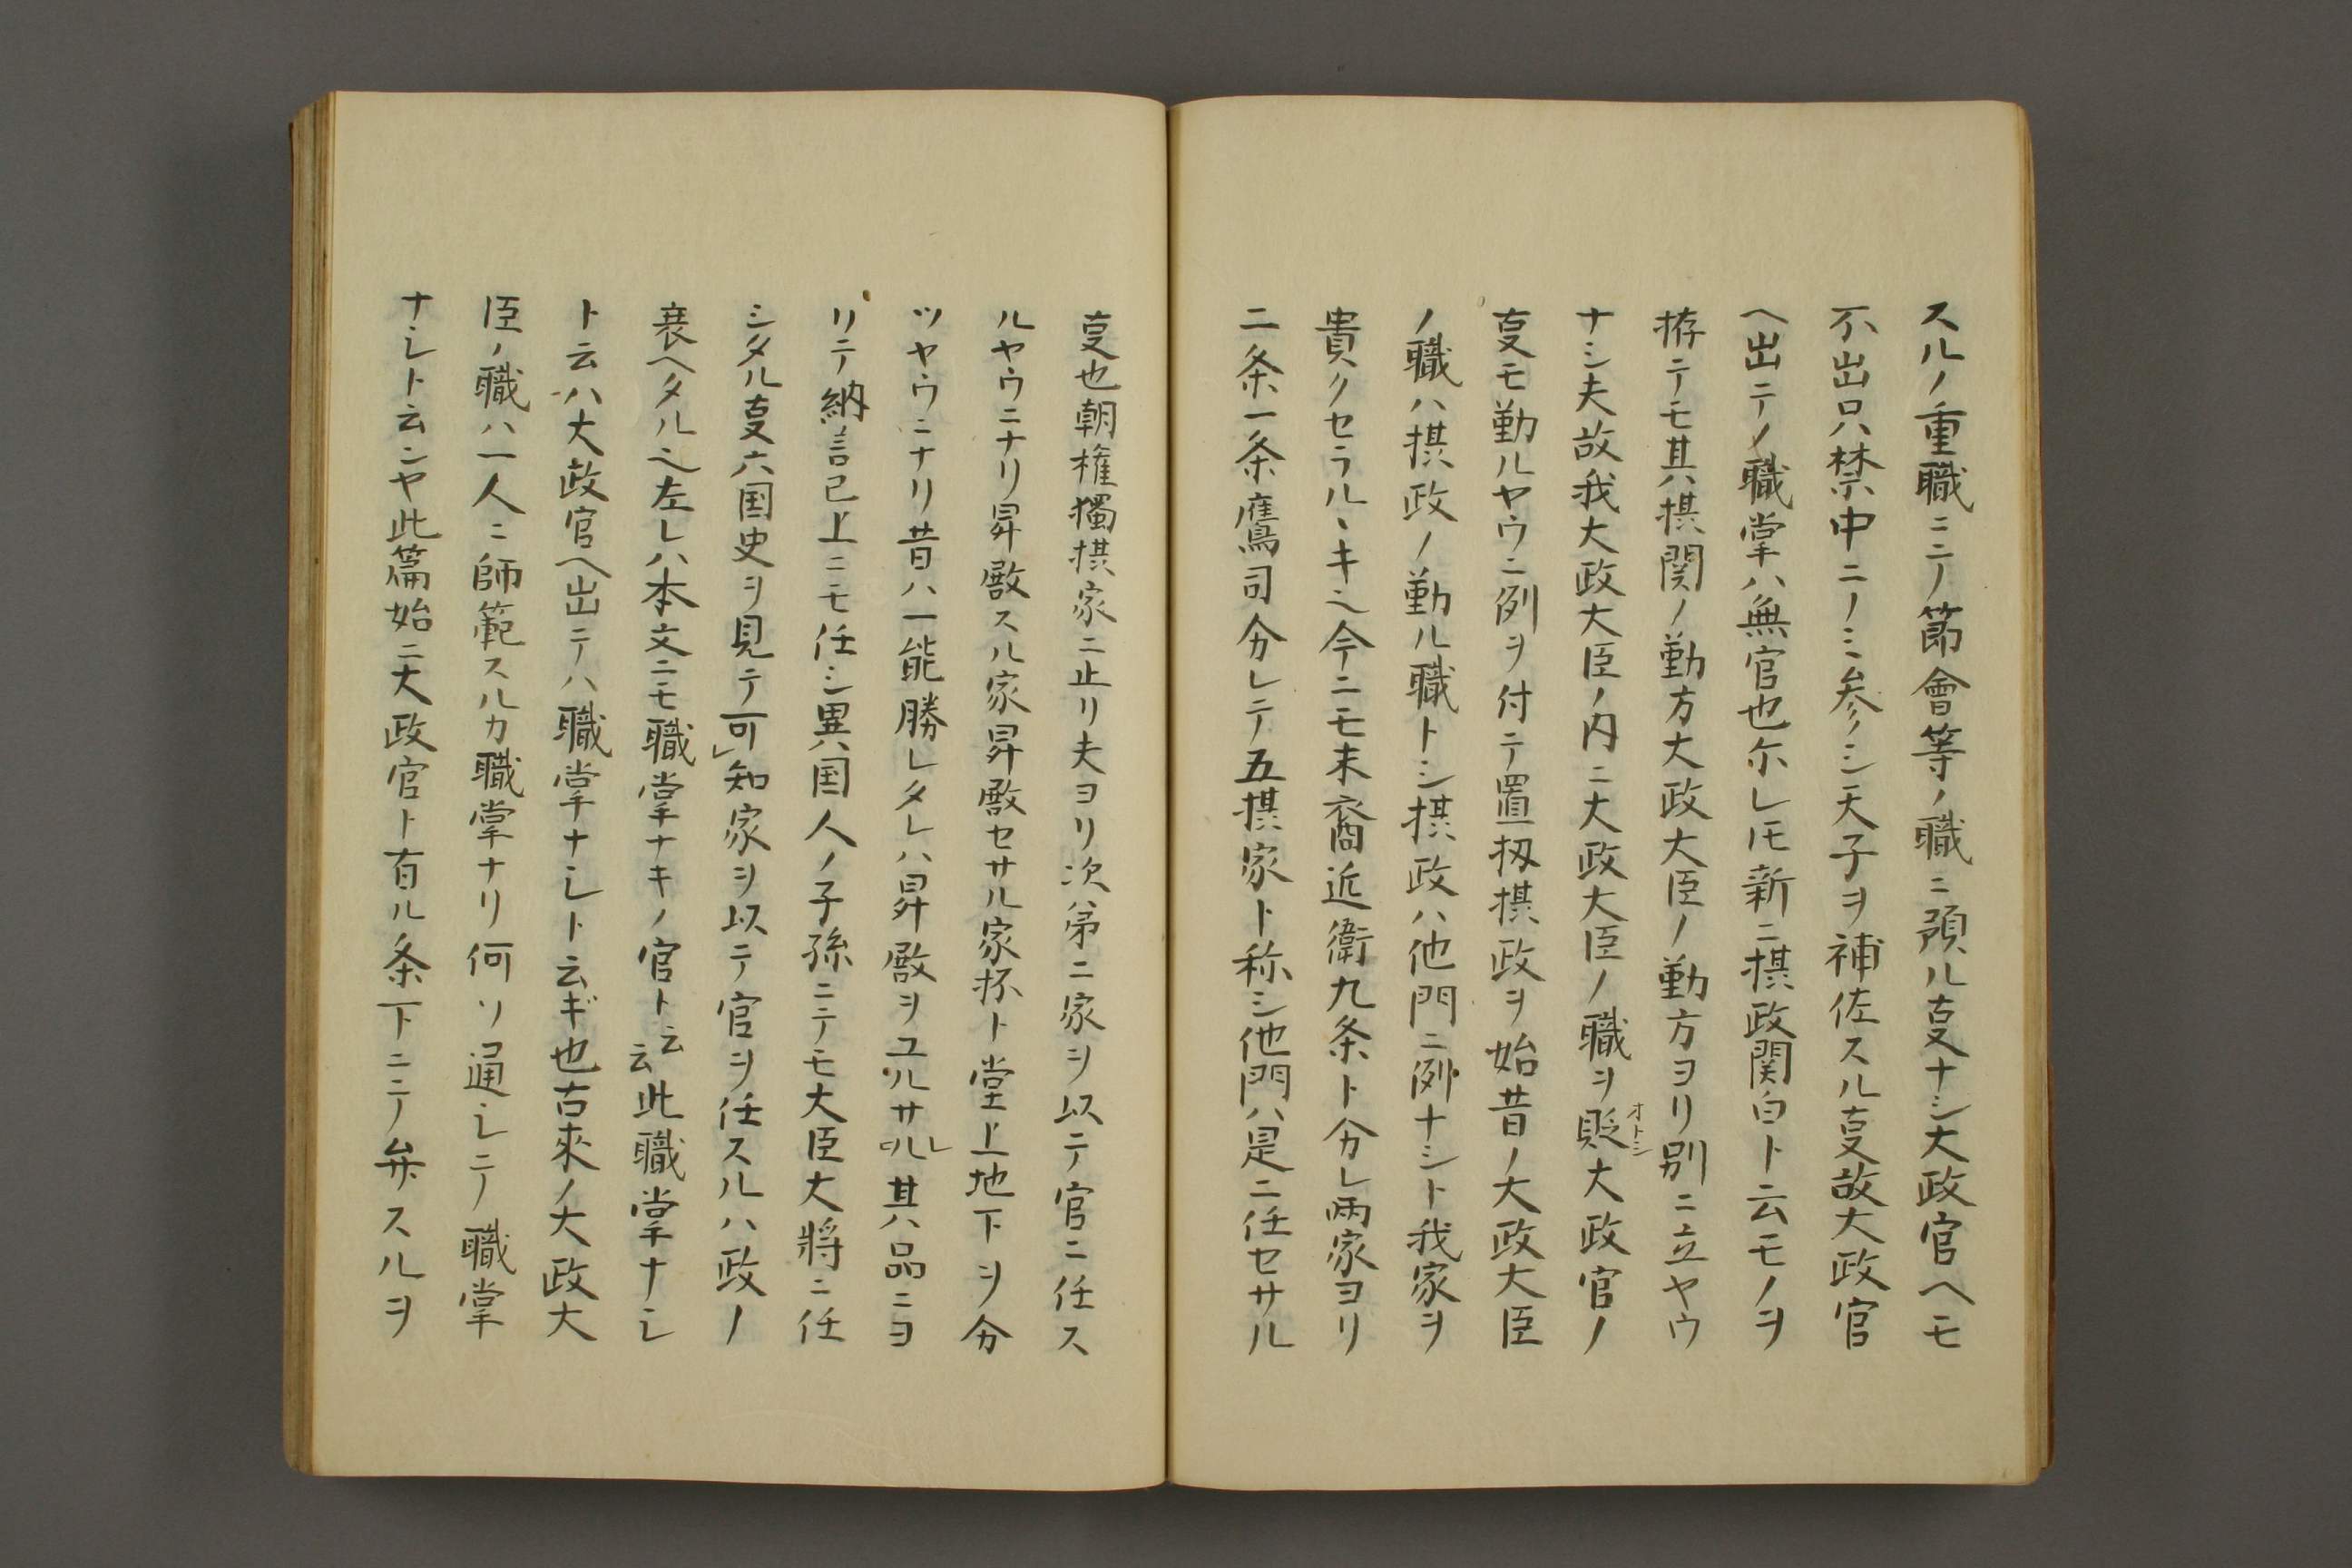 スルノ重職ニテ節會等ノ職ニ預ル叓ナシ大政官ヘモ
不出只禁中ニノミ参シ天子ヲ補佐スル叓故大政官
ヘ出テノ職掌ハ無官也尓レ𪜈新ニ摂政関白ト云モノヲ
拵テモ其摂関ノ勤方大政大臣ノ勤方ヨリ別ニ立ヤウ
ナシ夫故我大政大臣ノ内ニ大政大臣ノ職ヲ貶オトシ大政官ノ
叓モ勤ルヤウニ例ヲ付テ置扨摂政ヲ始昔ノ大政大臣
ノ職ハ摂政ノ勤ル職トシ摂政ハ他門ニ例ナシト我家ヲ
貴クセラルヽキ也今ニモ末裔近衛九条ト分レ両家ヨリ
二条一条鷹司分レテ五摂家ト称シ他門ハ是ニ任セサル
叓也朝権獨摂家ニ止リ夫ヨリ次第ニ家ヲ以テ官ニ任ス
ルヤウニナリ昇殿スル家昇殿セサル家抔ト堂上地下ヲ分
ツヤウニナリ昔ハ一能勝レタレハ昇殿ヲユルサル其品ニヨ
リテ納言已上ニモ任シ異国人ノ子孫ニテモ大臣大将ニ任
シタル叓六国史ヲ見テ可レ知家ヲ以テ官ヲ任スルハ政ノ
衰ヘタル也左レハ本文ニモ職掌ナキノ官ト云云此職掌ナシ
ト云ハ大政官ヘ出テハ職掌ナシト云ギ也古來ノ大政大
臣ノ職ハ一人ニ師範スルカ職掌ナリ何ソ通シテ職掌
ナシト云ンヤ此篇始ニ大政官ト有ル条下ニテ弁スルヲ